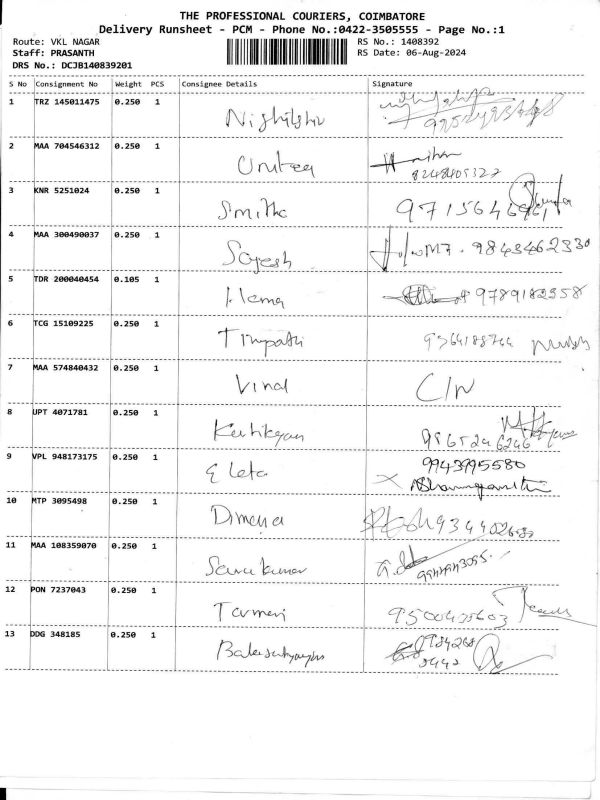 THE PROFESSIONAL COURIERS, COIMBATORE
Delivery Runsheet - PCM - Phone No.:0422-3505555 - Page No.:1
Route: VKL NAGAR RS No.: 1408392
Staff: PRASANTH RS Date: 06-Aug-2024
DRS No.: DCJB140839201
S No Consignment No Weight PCS Consignee Details Signature
1 TRZ 145011475 0.250 1
2 MAA 704546312 0.250 1
8248405327
3 KNR 5251024 0.250 1 Smitha
4 MAA 300490037 0.250 1 Sojesh 9843462330
5 TDR 200040454 0.105 1 Hema 9789182358
6 TCG 15109225 0.250 1 Tirupathi
7 MAA 574840432 0.250 1 Vinal C/N
8 UPT 4071781 0.250 1 9965246246
9 VPL 948173175 0.250 1 9943995580
10 MTP 3095498 0.250 1
11 MAA 108359070 0.250 1
12 PON 7237043 0.250 1 9500435603
13 DDG 348185 0.250 1